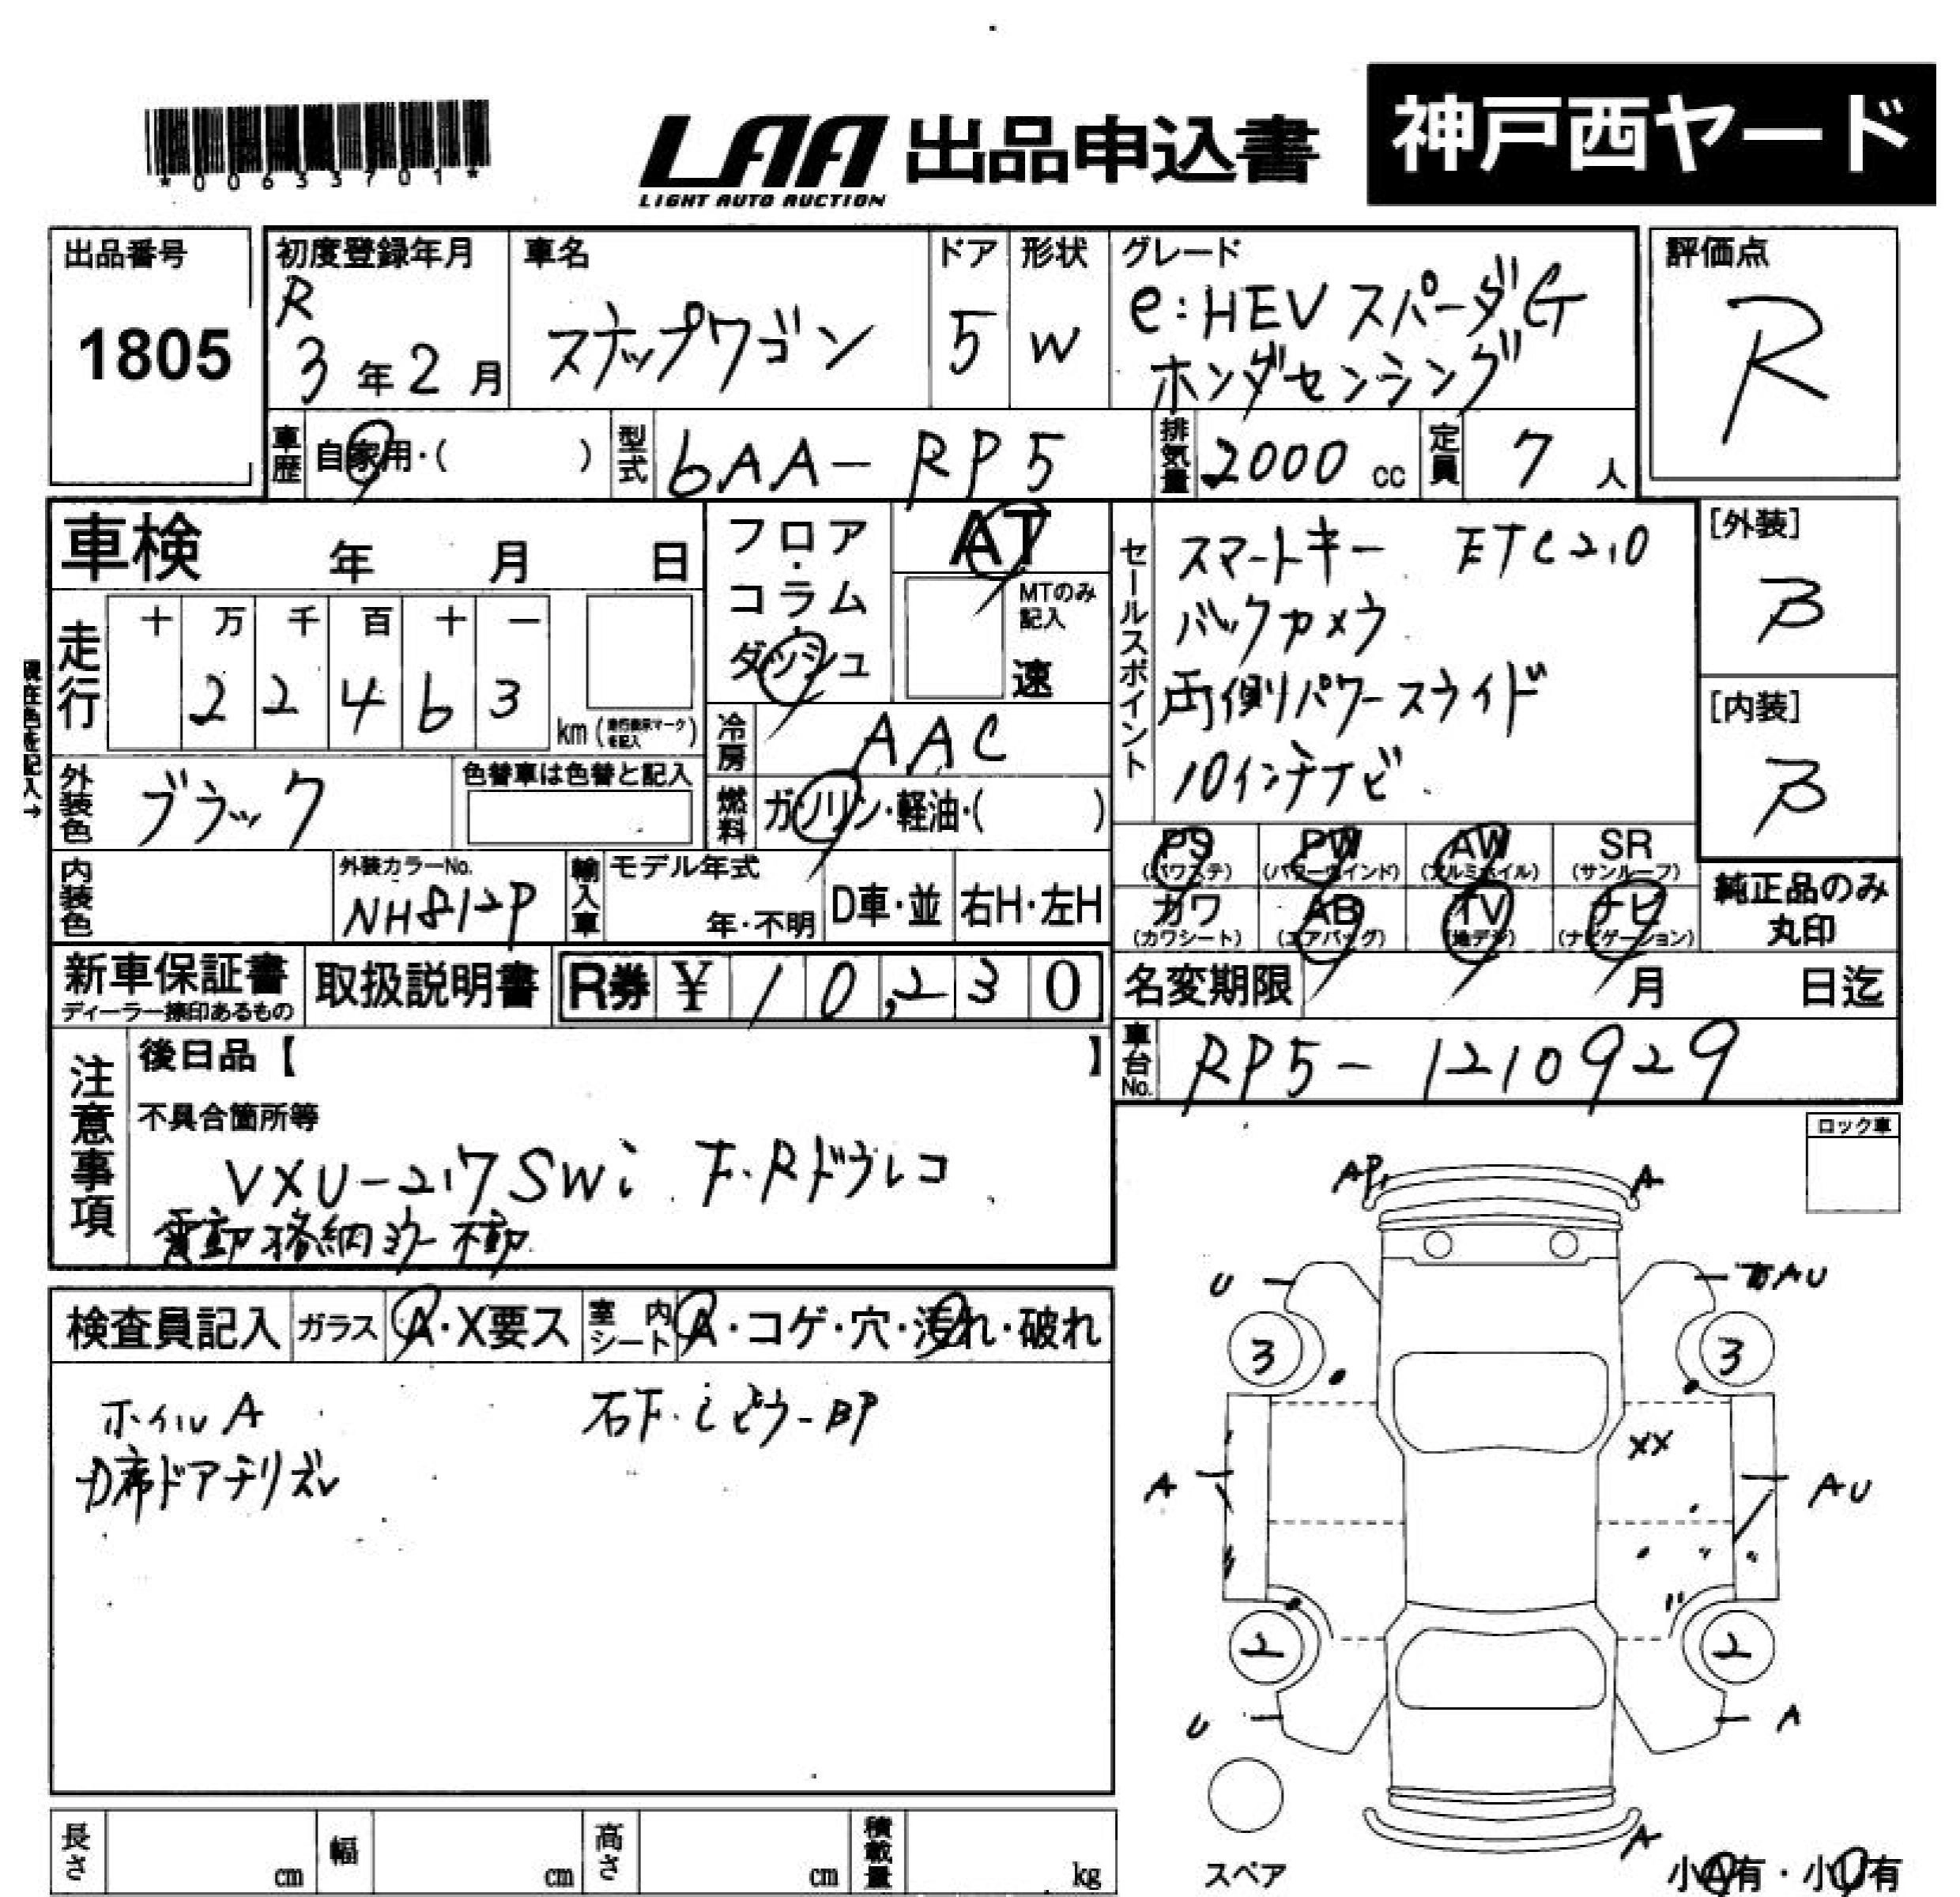 *00633701*
LAA 出品申込書 神戸西ヤード
LIGHT AUTO AUCTION
出品番号
1805
初度登録年月
R
3年2月
車名
ステップワゴン
ドア
5
形状
W
グレード
e:HEV スパーダG
ホンダセンシング
評価点
R
車歴 自家用・( )
型式 6AA-RP5
排気量 2000 cc
定員 7 人
車検 年 月 日
フロア・コラム・ダッシュ
AT
MTのみ記入
速
走行 十 万 千 百 十 一
2 2 4 6 3
km (走行表示マークを記入)
現在色を記入→
外装色 ブラック
色替車は色替と記入
冷房 AAC
燃料 ガソリン・軽油・( )
セールスポイント
スマートキー ETC2.0
バックカメラ
両側パワースライド
10インチナビ
[外装]
B
[内装]
B
内装色
外装カラーNo.
NH812P
輸入車 モデル年式
年・不明
D車・並 右H・左H
PS (パワステ) PW (パワーウインド) AW (アルミホイル) SR (サンルーフ)
カワ (カワシート) AB (エアバッグ) TV (地デジ) ナビ (ナビゲーション)
純正品のみ丸印
新車保証書
ディーラー捺印あるもの
取扱説明書
R券 ¥ 10,230
名変期限 月 日迄
車台No. RP5-1210929
注意事項
後日品【 】
不具合箇所等
VXU-217SWi F・Rドラレコ
電動格納ミラー不動
検査員記入 ガラス A・X要ス 室内シート A・コゲ・穴・汚れ・破れ
ホイルA
D席ドアチリズレ
ロック車
AP A
U AU
3 3
XX
A AU
2 2
U A
A
スペア
小A有・小U有
長さ cm 幅 cm 高さ cm 積載量 kg